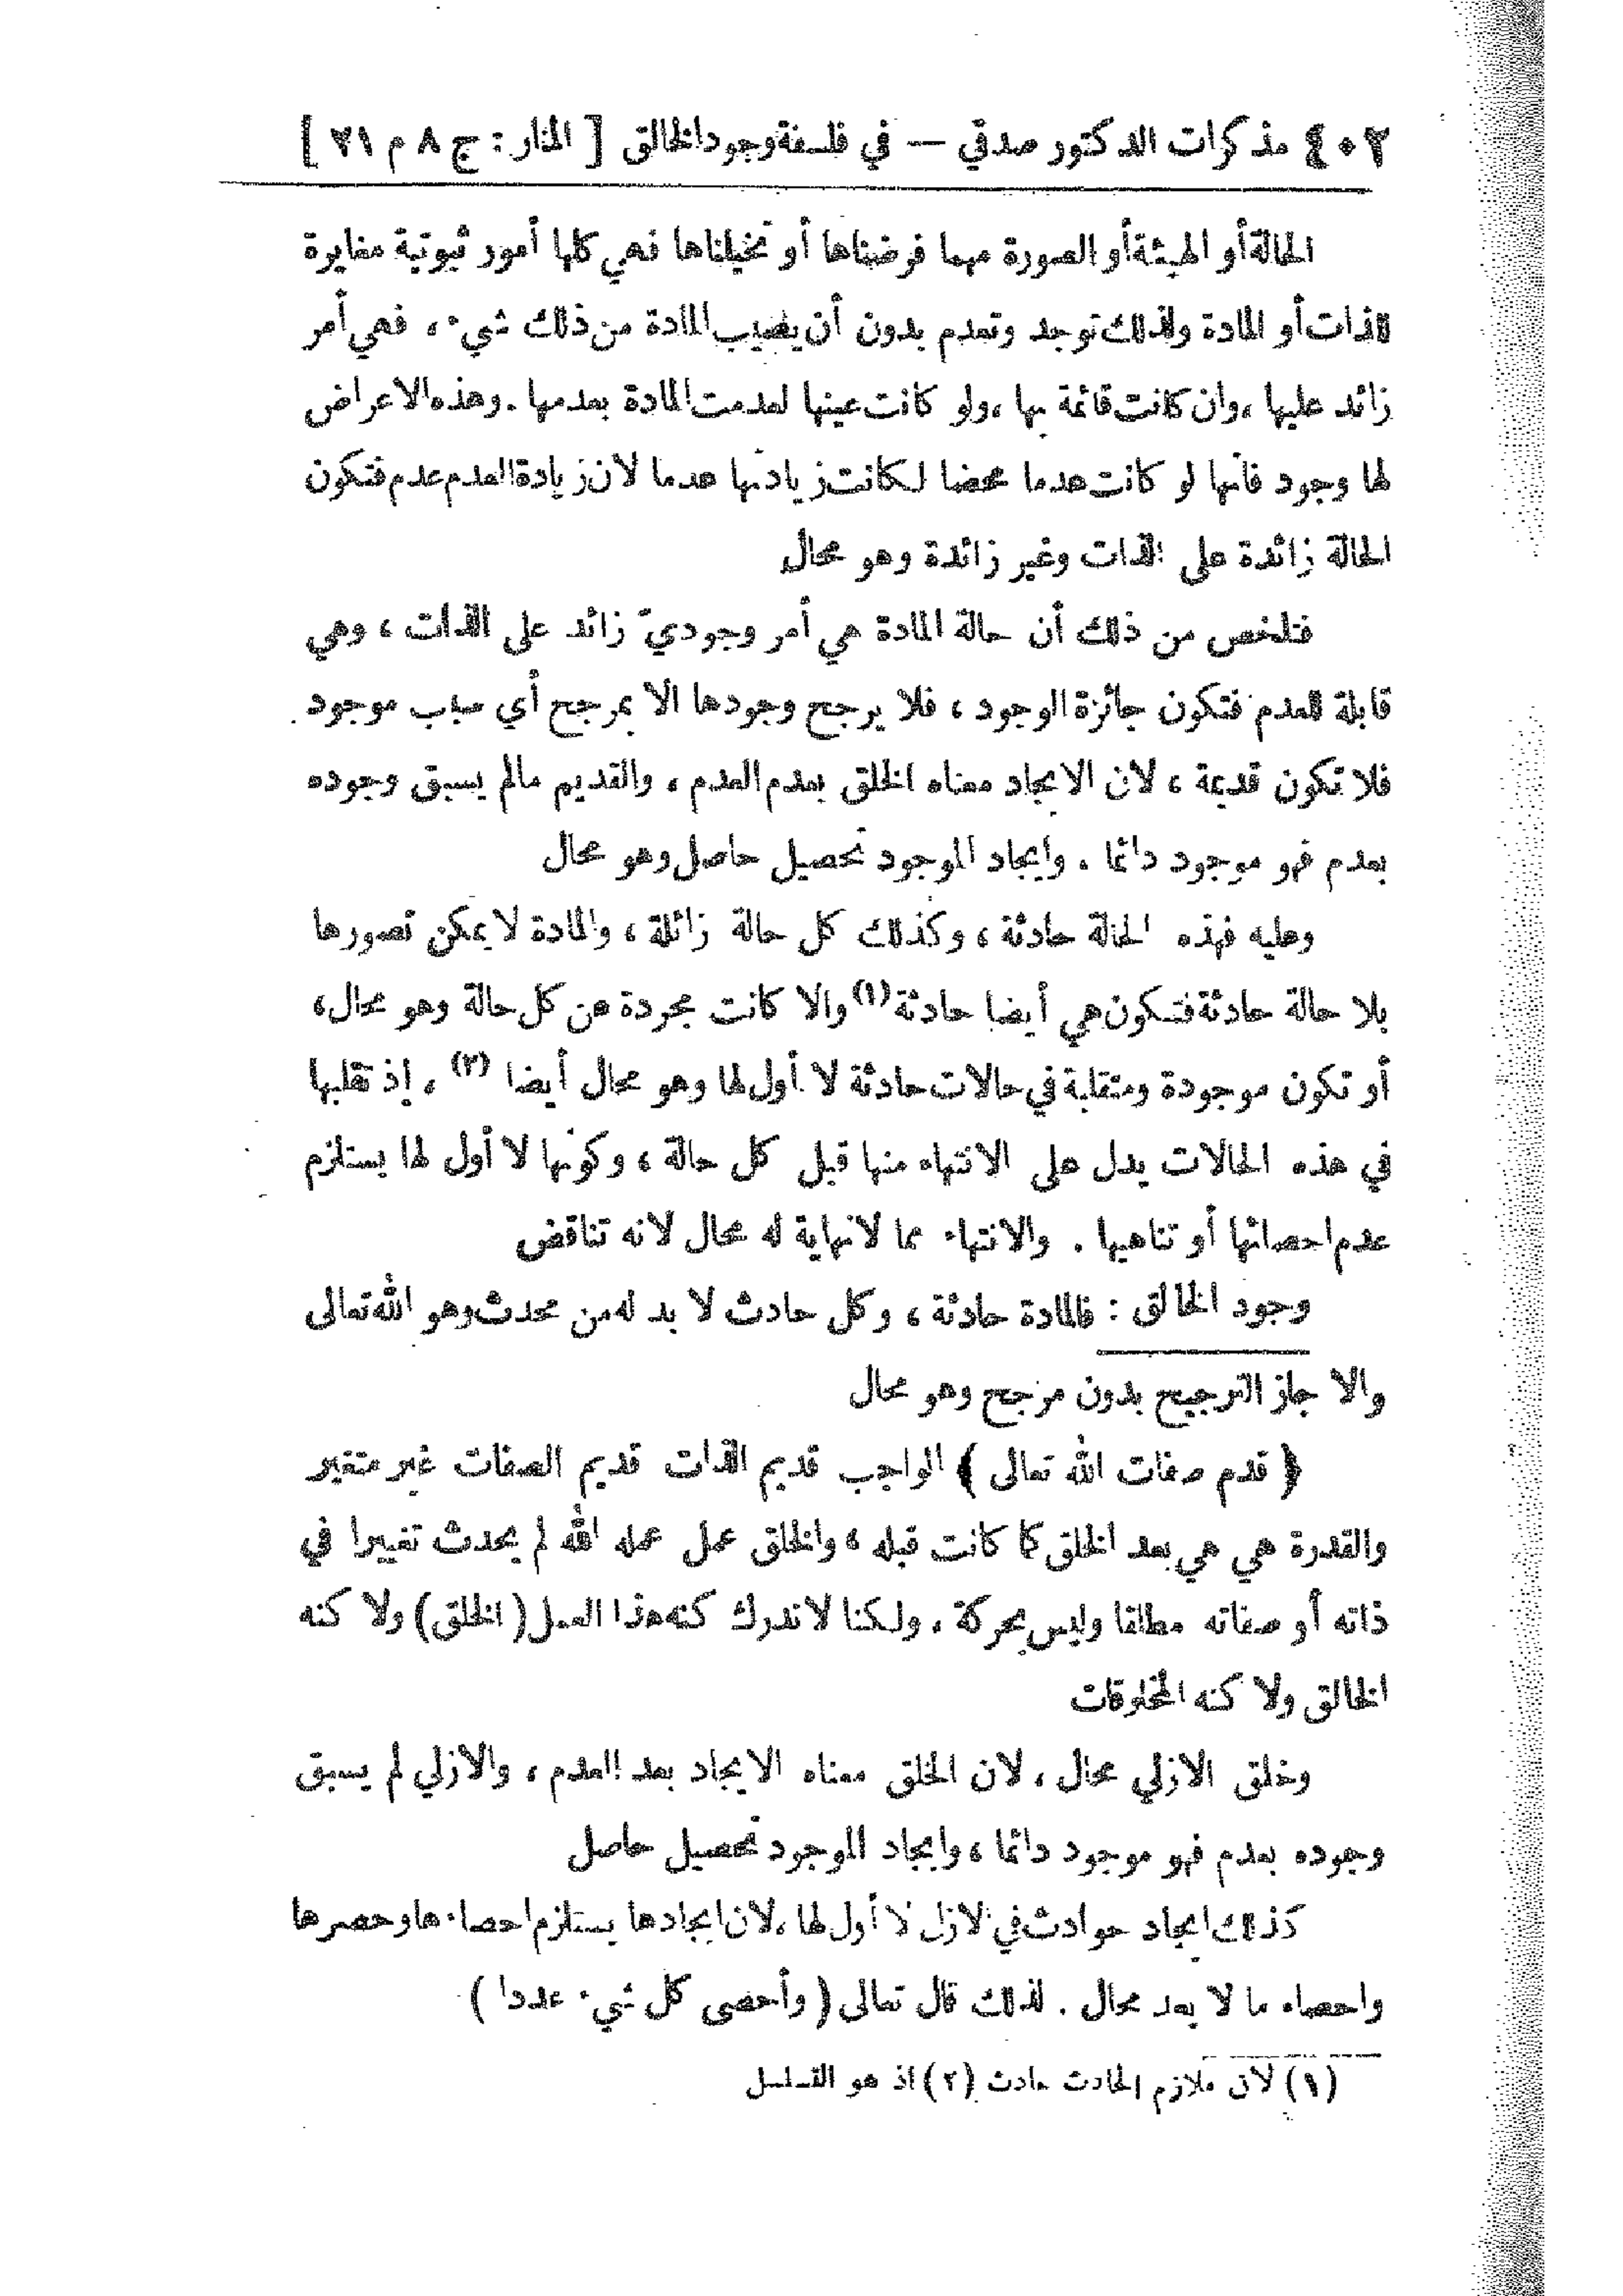 ٤٠٢ مذكرات الدكتور صدقي — في فلسفة وجود الخالق [ المنار : ج ٨ م ٢١ ]
الحالة أو الهيئة أو الصورة مهما فرضناها أو تخيلناها فهي كلها أمور ثبوتية مغايرة
للذات أو المادة ولذلك توجد وتعدم بدون أن يصيب المادة من ذلك شيء ، فهي أمر
زائد عليها ، وان كانت قائمة بها ، ولو كانت عينها لعدمت المادة بعدمها . وهذه الاعراض
لها وجود فانها لو كانت عدما محضا لكانت زيادتها عدما لان زيادة العدم عدم فتكون
الحالة زائدة على الذات وغير زائدة وهو محال
فتلخص من ذلك أن حالة المادة هي أمر وجوديّ زائد على الذات ، وهي
قابلة للعدم فتكون جائزة الوجود ، فلا يرجح وجودها الا بمرجح أي سبب موجود
فلا تكون قديمة ، لان الايجاد معناه الخلق بعدم العدم ، والقديم مالم يسبق وجوده
بعدم فهو موجود دائما . وايجاد الموجود تحصيل حاصل وهو محال
وعليه فهذه الحالة حادثة ، وكذلك كل حالة زائلة ، والمادة لا يمكن تصورها
بلا حالة حادثة فتكون هي أيضا حادثة (١) والا كانت مجردة عن كل حالة وهو محال ،
أو تكون موجودة ومتقلبة في حالات حادثة لا أول لها وهو محال أيضا (٢) ، إذ تقلبها
في هذه الحالات يدل على الانتهاء منها قبل كل حالة ، وكونها لا أول لها يستلزم
عدم احصائها أو تناهيها . والانتهاء مما لانهاية له محال لانه تناقض
وجود الخالق : فالمادة حادثة ، وكل حادث لا بد له من محدث وهو الله تعالى
والا جاز الترجيح بدون مرجح وهو محال
﴿ قدم صفات الله تعالى ﴾ الواجب قديم الذات قديم الصفات غير متغير
والقدرة هي هي بعد الخلق كما كانت قبله ، والخلق عمل عمله الله لم يحدث تغييرا في
ذاته أو صفاته مطلقا وليس بحركة . ولكنا لا ندرك كنه هذا العمل ( الخلق ) ولا كنه
الخالق ولا كنه المخلوقات
وخلق الازلي محال ، لان الخلق معناه الايجاد بعد العدم ، والازلي لم يسبق
وجوده بعدم فهو موجود دائما ، وايجاد الموجود تحصيل حاصل
كذلك ايجاد حوادث في الازل لا أول لها ، لان ايجادها يستلزم احصاءها وحصرها
واحصاء ما لا يعد محال . لذلك قال تعالى ( وأحصى كل شيء عددا )
(١) لان ملازم الحادث حادث (٢) اذ هو التسلسل